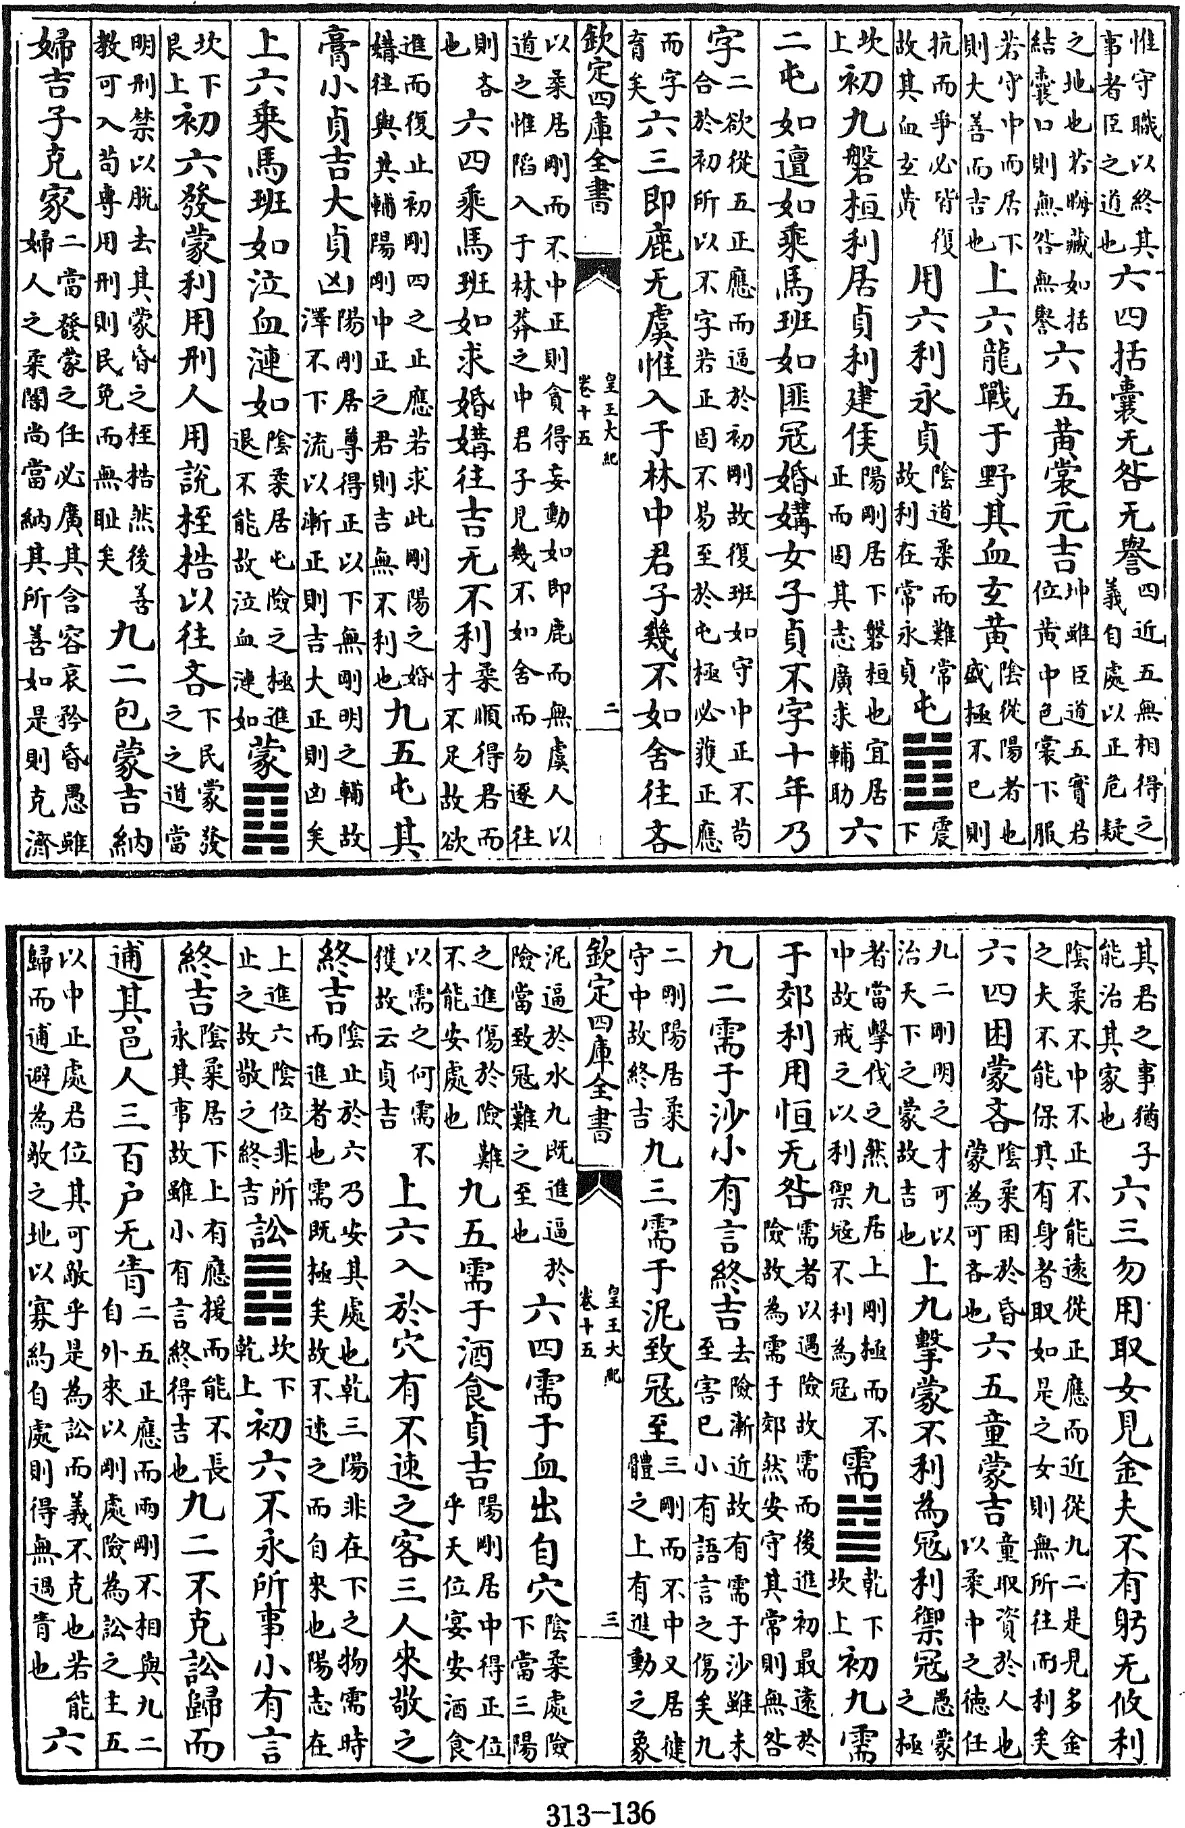 惟守職以終其事者臣之道也六四括囊无咎无譽四近五無相得之義自處以正危疑
之地也若晦藏如括結囊口則無咎無譽六五黄裳元吉坤雖臣道五實君位黄中色裳下服
若守中而居下則大善而吉也上六龍戰于野其血玄黄陰從陽者也盛極不已則
抗而爭必皆復故其血玄黄用六利永貞陰道柔而難常故利在常永貞屯䷂震下
坎上初九磐桓利居貞利建侯陽剛居下磐桓也宜居正而固其志廣求輔助六
二屯如邅如乘馬班如匪冦婚媾女子貞不字十年乃
字二欲從五正應而逼於初剛故復班如守中正不茍合於初所以不字若正固不易至於屯極必獲正應
而字育矣六三即鹿无虞惟入于林中君子幾不如舍往吝
欽定四庫全書 皇王大紀 卷十五 二
以柔居剛而不中正則貪得妄動如即鹿而無虞人以道之惟陷入于林莽之中君子見幾不如舍而勿逐往
則吝也六四乘馬班如求婚媾往吉无不利柔順得君而才不足故欲
進而復止初剛四之正應若求此剛陽之婚媾往與共輔陽剛中正之君則吉無不利也九五屯其
膏小貞吉大貞凶陽剛居尊得正以下無剛明之輔故澤不下流以漸正則吉大正則凶矣
上六乘馬班如泣血漣如陰柔居屯險之極進退不能故泣血漣如蒙䷃
坎下艮上初六發蒙利用刑人用說桎梏以往吝下民蒙發之之道當
明刑禁以脱去其蒙昏之桎梏然後善教可入茍專用刑則民免而無耻矣九二包蒙吉納
婦吉子克家二當發蒙之任必廣其含容哀矜昏愚雖婦人之柔闇尚當納其所善如是則克濟
其君之事猶子能治其家也六三勿用取女見金夫不有躬无攸利
陰柔不中不正不能遠從正應而近從九二是見多金之夫不能保其有身者取如是之女則無所往而利矣
六四困蒙吝陰柔困於昏蒙為可吝也六五童蒙吉童取資於人也以柔中之德任
九二剛明之才可以治天下之蒙故吉也上九擊蒙不利為冦利禦冦愚蒙之極
者當擊伐之然九居上剛極而不中故戒之以利禦冦不利為冦需䷄乾下坎上初九需
于郊利用恒无咎需者以遇險故需而後進初最遠於險故為需于郊然安守其常則無咎
九二需于沙小有言終吉去險漸近故有需于沙雖未至害已小有語言之傷矣九
二剛陽居柔守中故終吉九三需于泥致冦至三剛而不中又居健體之上有進動之象
欽定四庫全書 皇王大紀 卷十五 三
泥逼於水九既進逼於險當致冦難之至也六四需于血出自穴陰柔處險下當三陽
之進傷於險難不能安處也九五需于酒食貞吉陽剛居中得正位乎天位宴安酒食
以需之何需不獲故云貞吉上六入於穴有不速之客三人來敬之
終吉陰止於六乃安其處也乾三陽非在下之物需時而進者也需既極矣故不速之而自來也陽志在
上進六陰位非所止之故敬之終吉訟䷅坎下乾上初六不永所事小有言
終吉陰柔居下上有應援而能不長永其事故雖小有言終得吉也九二不克訟歸而
逋其邑人三百户无眚二五正應而兩剛不相與九二自外來以剛處險為訟之主五
以中正處君位其可敵乎是為訟而義不克也若能歸而逋避為敵之地以寡約自處則得無過眚也六
313-136